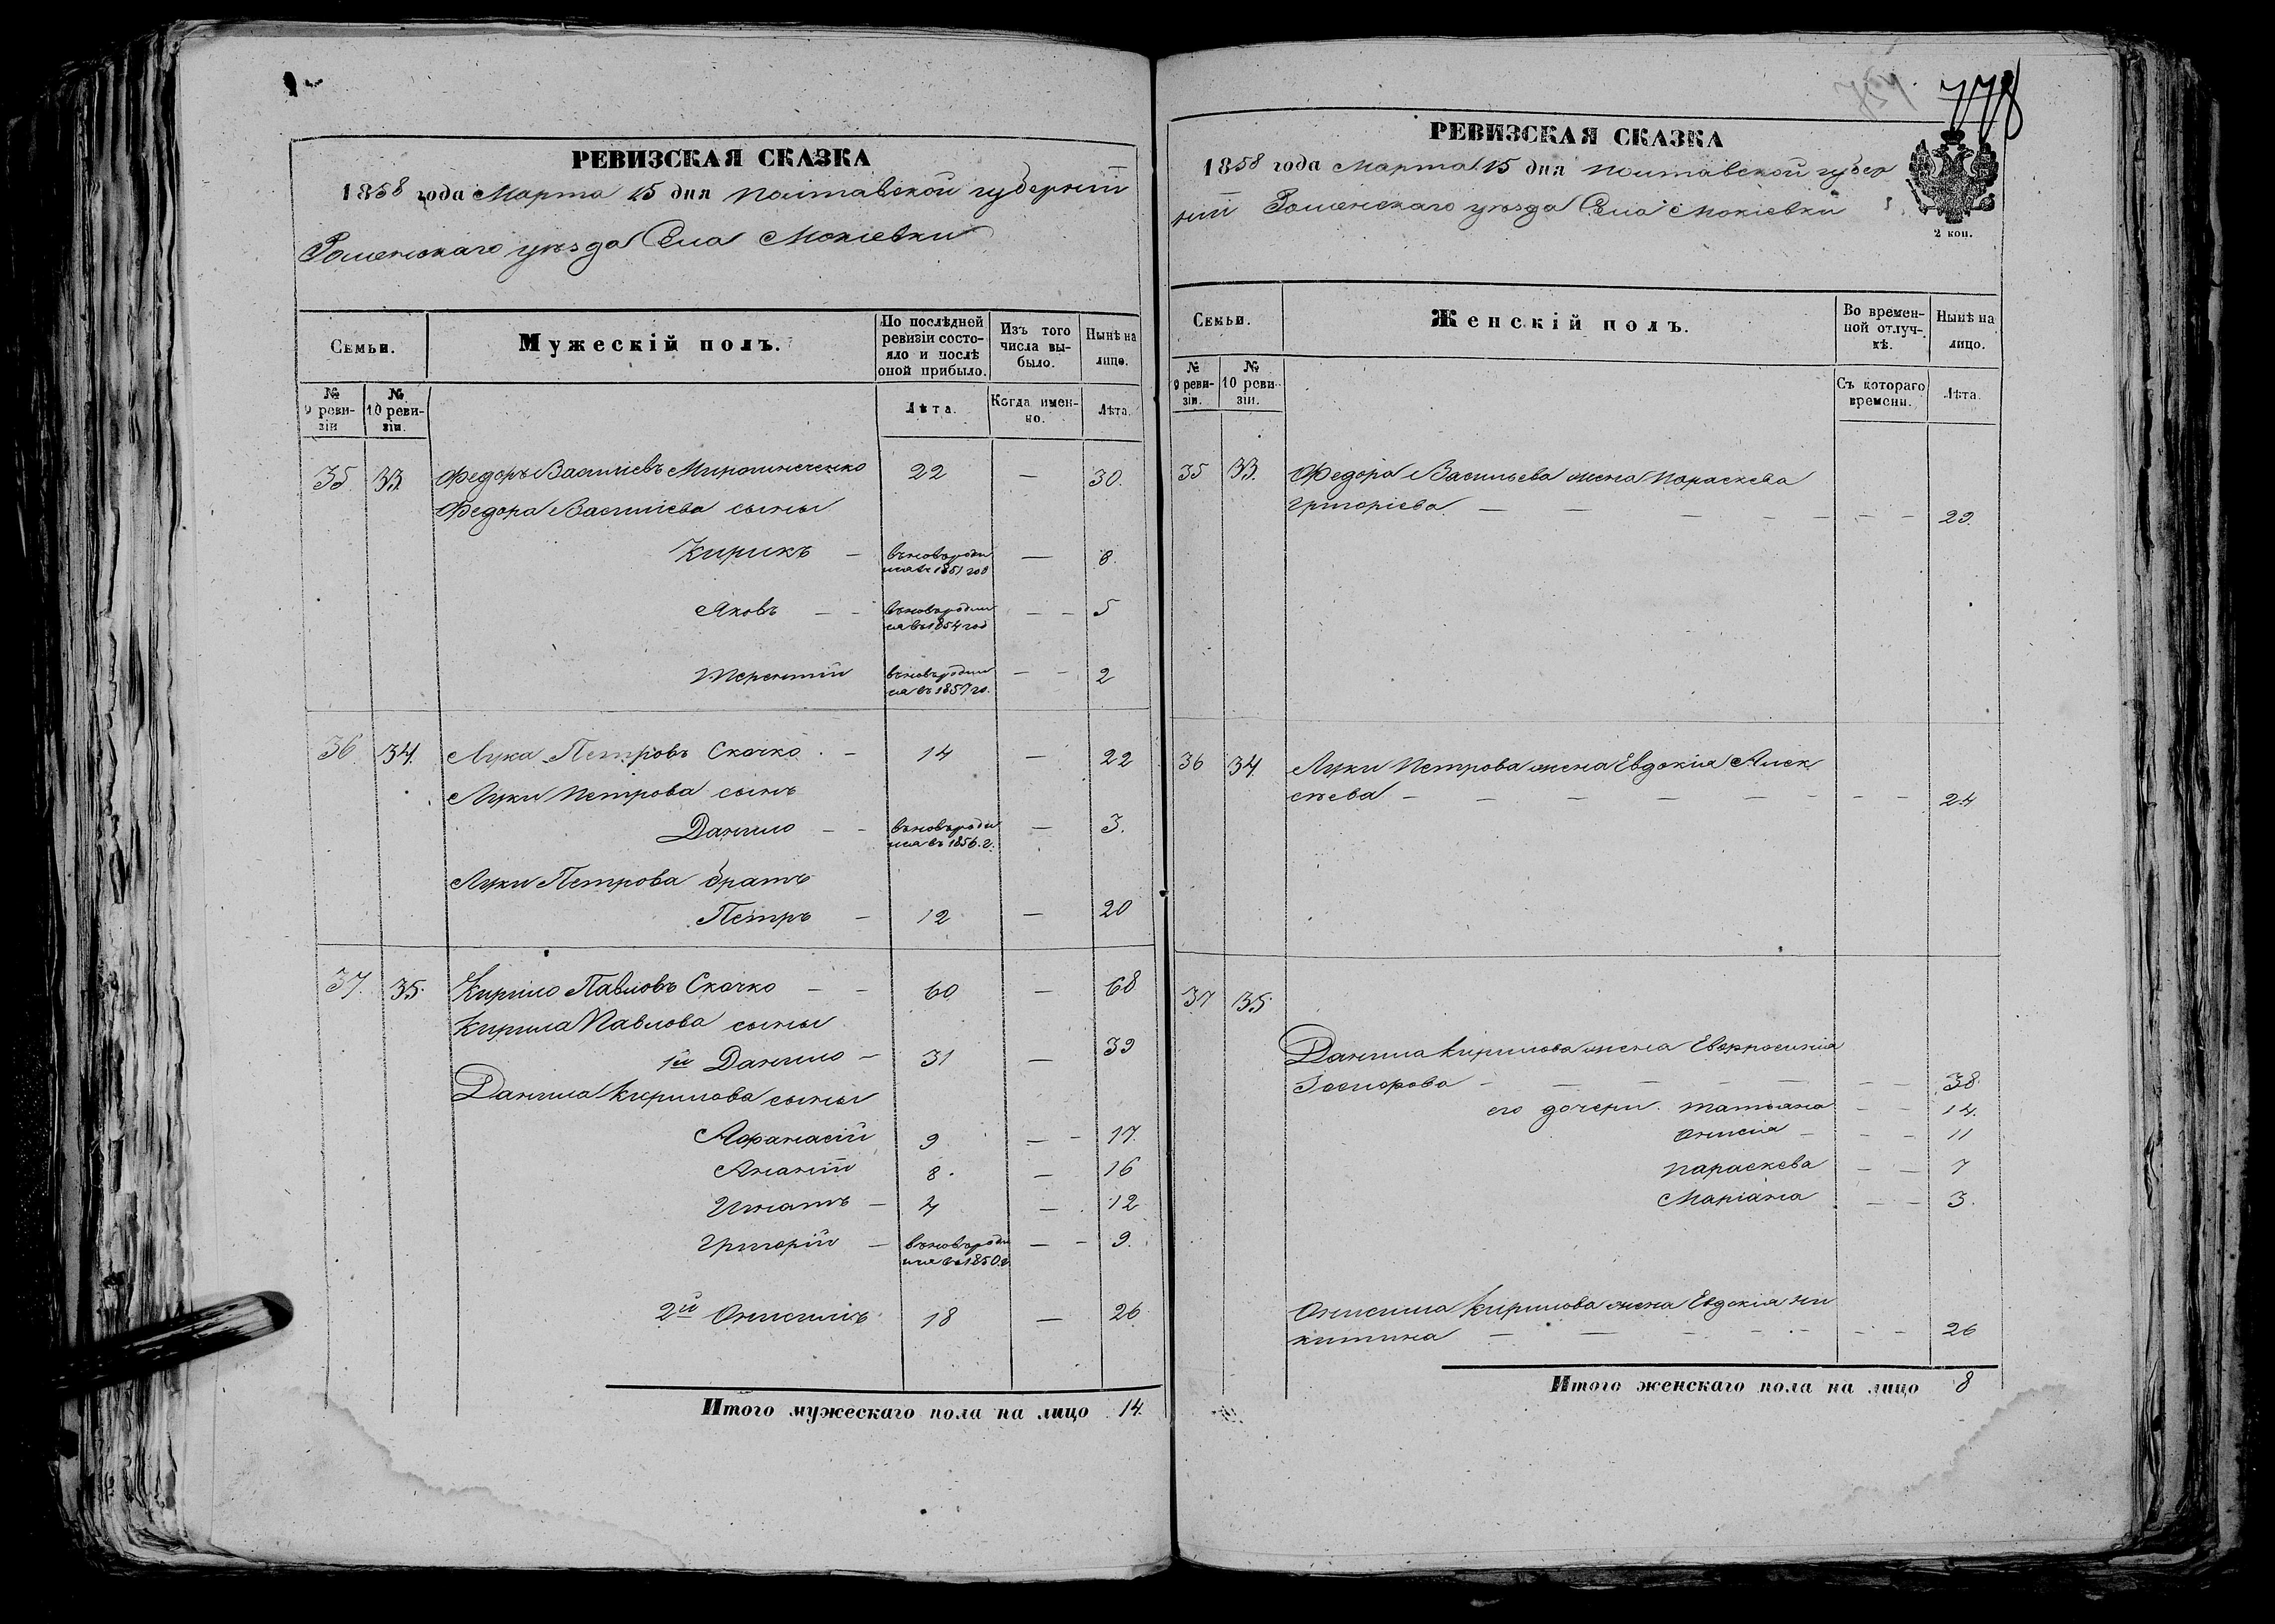 РЕВИЗСКАЯ СКАЗКА
1858 года Марта 15 дня Полтавской губерніи
Роменскаго уѣзда Села Мокіевки
Семьи.
Мужескій полъ.
По послѣдней ревизіи состояло и послѣ оной прибыло.
Изъ того числа выбыло.
Нынѣ на лицо.
№ 9 ревизіи
№ 10 ревизіи.
Лѣта.
Когда именно.
Лѣта.
35. 33. Федоръ Василіевъ 22 — 30.
Федора Василіева сыны
Кирикъ — вновь родился въ 1851 год — 8.
Яковъ — — вновь родился въ 1854 год — — 5
Терентій вновь родился въ 1857 го. — — 2
36. 34. Лука Петровъ Скочко. — 14 — 22
Луки Петрова сынъ
Данило — — вновь родился въ 1856. г. — 3.
Луки Петрова братъ
Петръ — 12 — 20
37. 35. Кирило Павловъ Скочко — — 60 — 68
Кирила Павлова сыны
1й Данило — 31 — 39
Данила Кирилова сыны
Афанасій 9 — — 17.
Ананій 8. — 16
Игнатъ — 4 — 12
Григорій — вновь родился въ 1850. г. — — 9.
2й Онисимъ 18 — 26
Итого мужескаго пола на лицо 14.
778
РЕВИЗСКАЯ СКАЗКА
1858 года Марта 15 дня Полтавской губер
ніи Роменскаго уѣзда Села Мокіевки
2 коп.
Семьи.
Женскій полъ.
Во временной отлучкѣ.
Нынѣ на лицо.
№ 9 ревизіи.
№ 10 ревизіи.
Съ котораго времени.
Лѣта.
35 33. Федора Васильева жена Параскева
Григоріева — — — — — — — 29.
36 34 Луки Петрова жена Евдокіа Алек
сѣева — — — — — — — — 24
37 35
Данила Кирилова жена Евфросиніа
— — — — — — — 38.
его дочери. Татьяна — — 14.
Онисіа — — — 11
Параскева — — 7
Маріана — — 3.
Онисима Кирилова жена Евдокіа Ни
китина — — — — — — — 26
Итого женскаго пола на лицо 8